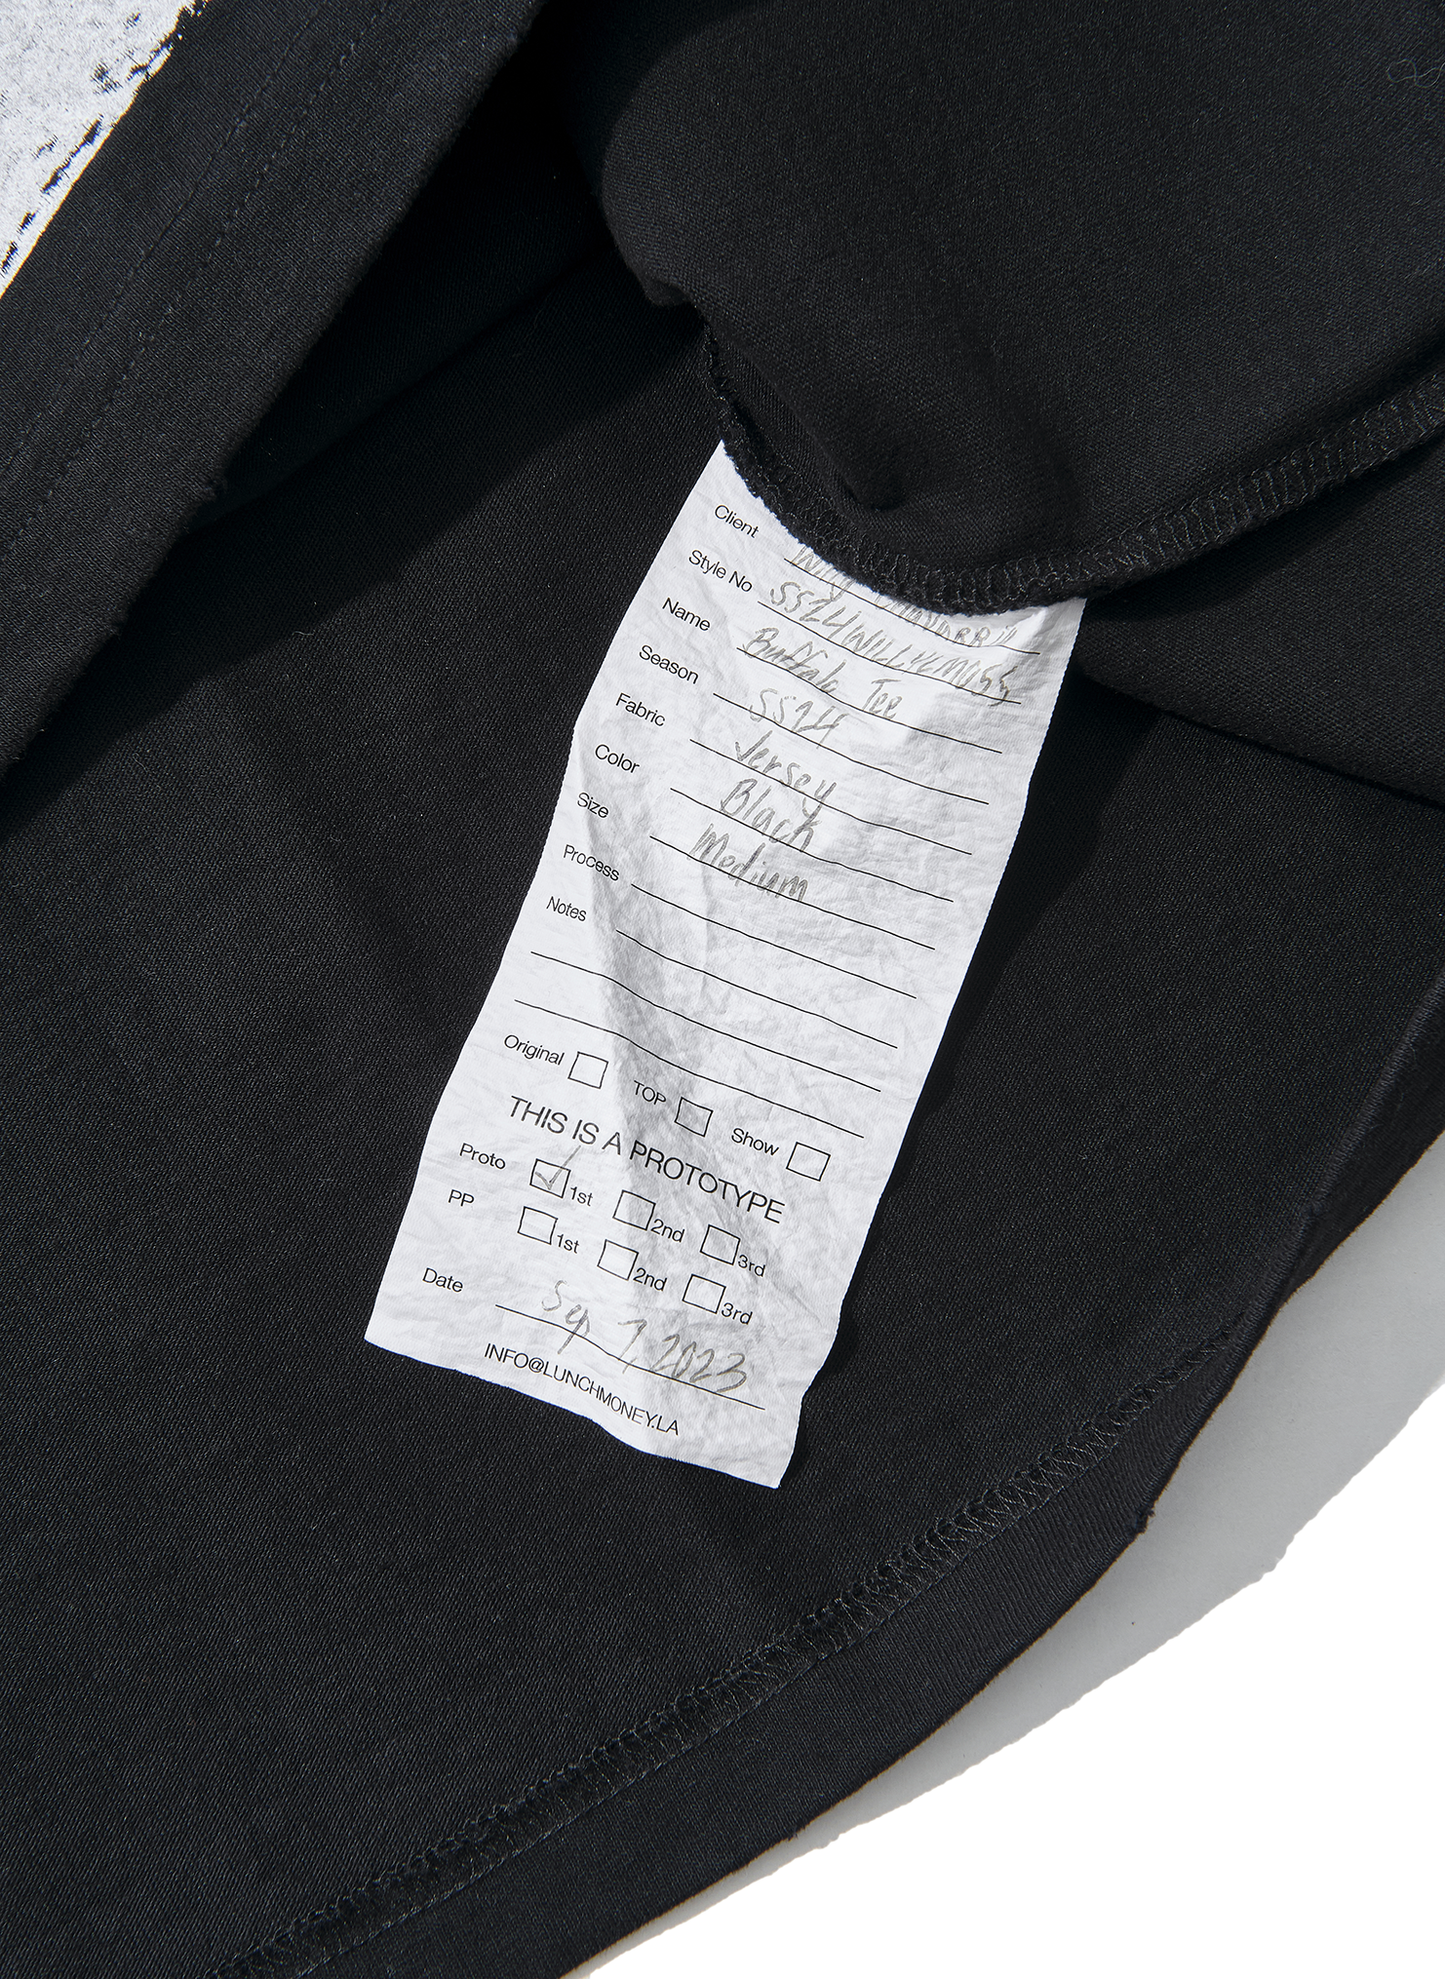 Client Willy Chavarria
Style No SS24WILLYCM055
Name Buffalo Tee
Season SS24
Fabric Jersey
Color Black
Size Medium
Process
Notes
Original TOP Show
THIS IS A PROTOTYPE
Proto 1st 2nd 3rd
PP 1st 2nd 3rd
Date Sep 7 2023
INFO@LUNCHMONEY.LA